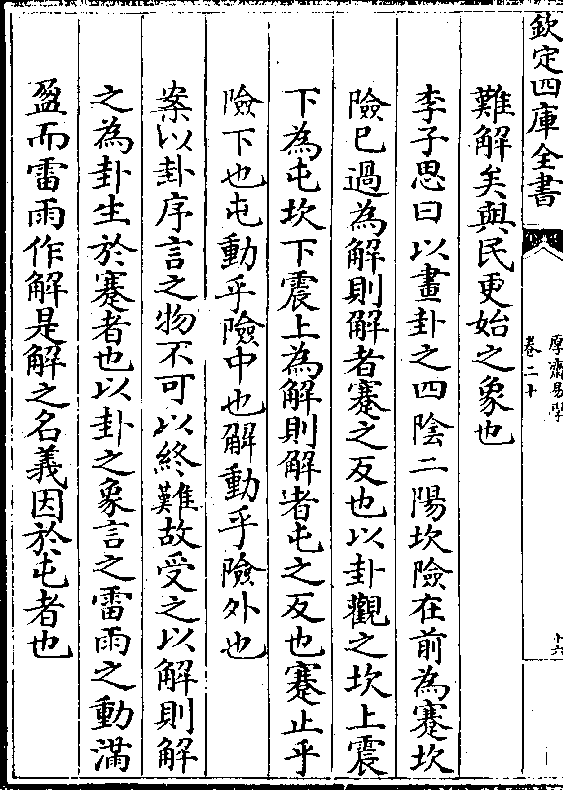 欽定四庫全書
厚齋易學
卷二十
十六
難解矣與民更始之象也
李子思曰以畫卦之四陰二陽坎險在前為蹇坎
險已過為解則解者蹇之反也以卦觀之坎上震
下為屯坎下震上為解則解者屯之反也蹇止乎
險下也屯動乎險中也解動乎險外也
案以卦序言之物不可以終難故受之以解則解
之為卦生於蹇者也以卦之象言之雷雨之動滿
盈而雷雨作解是解之名義因於屯者也